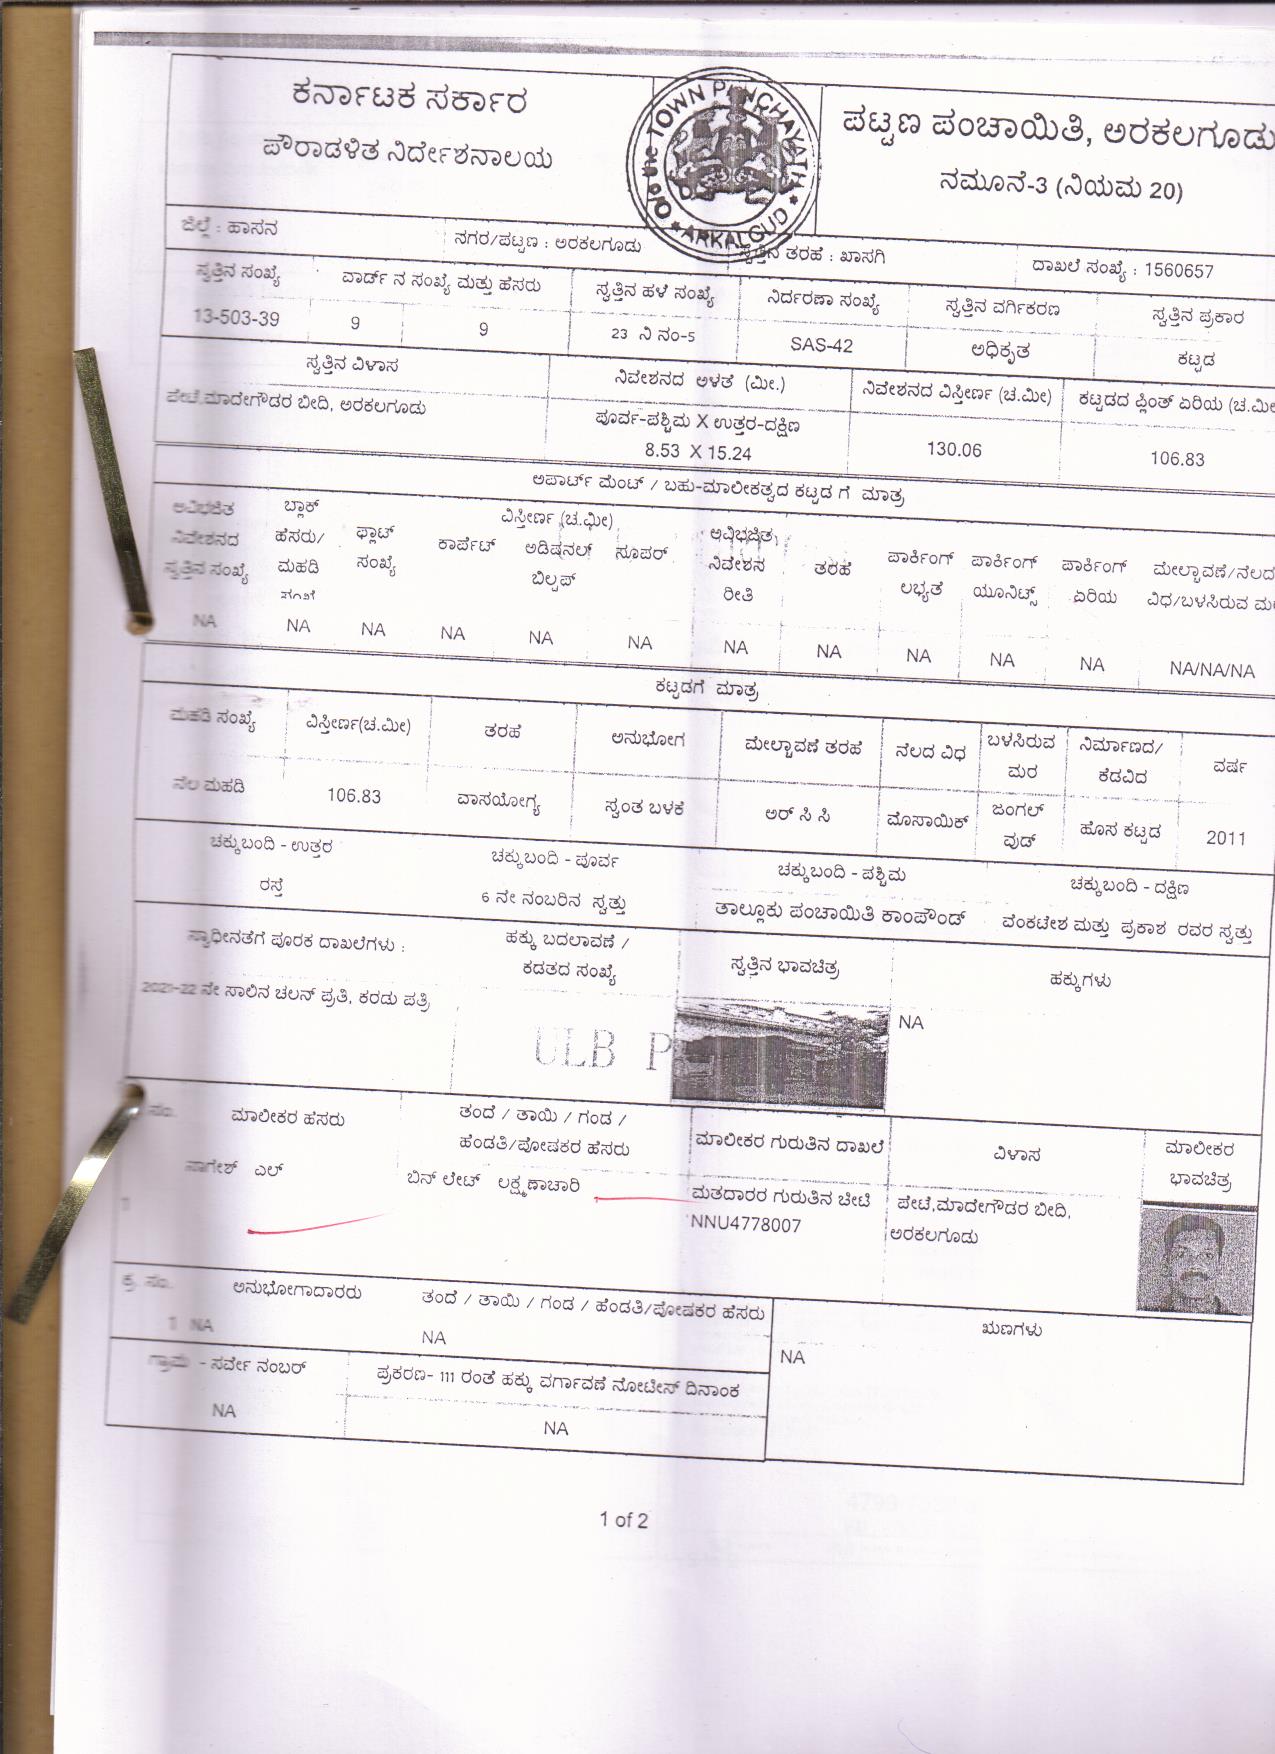 ಕರ್ನಾಟಕ ಸರ್ಕಾರ
ಪೌರಾಡಳಿತ ನಿರ್ದೇಶನಾಲಯ
O/o the TOWN PANCHAYATH
* ARKALGUD *
ಪಟ್ಟಣ ಪಂಚಾಯಿತಿ, ಅರಕಲಗೂಡು
ನಮೂನೆ-3 (ನಿಯಮ 20)
ಜಿಲ್ಲೆ : ಹಾಸನ ನಗರ/ಪಟ್ಟಣ : ಅರಕಲಗೂಡು ಸ್ವತ್ತಿನ ತರಹೆ : ಖಾಸಗಿ ದಾಖಲೆ ಸಂಖ್ಯೆ : 1560657
ಸ್ವತ್ತಿನ ಸಂಖ್ಯೆ ವಾರ್ಡ್ ನ ಸಂಖ್ಯೆ ಮತ್ತು ಹೆಸರು ಸ್ವತ್ತಿನ ಹಳೆ ಸಂಖ್ಯೆ ನಿರ್ದರಣಾ ಸಂಖ್ಯೆ ಸ್ವತ್ತಿನ ವರ್ಗಿಕರಣ ಸ್ವತ್ತಿನ ಪ್ರಕಾರ
13-503-39 9 9 23 ನಿ ನಂ-5 SAS-42 ಅಧಿಕೃತ ಕಟ್ಟಡ
ಸ್ವತ್ತಿನ ವಿಳಾಸ ನಿವೇಶನದ ಅಳತೆ (ಮೀ.) ನಿವೇಶನದ ವಿಸ್ತೀರ್ಣ (ಚ.ಮೀ) ಕಟ್ಟಡದ ಪ್ಲಿಂತ್ ಏರಿಯ (ಚ.ಮೀ
ಪೇಟೆ,ಮಾದೇಗೌಡರ ಬೀದಿ, ಅರಕಲಗೂಡು ಪೂರ್ವ-ಪಶ್ಚಿಮ X ಉತ್ತರ-ದಕ್ಷಿಣ
8.53 X 15.24 130.06 106.83
ಅಪಾರ್ಟ್ ಮೆಂಟ್ / ಬಹು-ಮಾಲೀಕತ್ವದ ಕಟ್ಟಡ ಗೆ ಮಾತ್ರ
ಅವಿಭಜಿತ ನಿವೇಶನದ ಸ್ವತ್ತಿನ ಸಂಖ್ಯೆ
ಬ್ಲಾಕ್ ಹೆಸರು/ ಮಹಡಿ ಸಂಖ್ಯೆ
ಫ್ಲಾಟ್ ಸಂಖ್ಯೆ
ವಿಸ್ತೀರ್ಣ (ಚ.ಮೀ)
ಕಾರ್ಪೆಟ್ ಅಡಿಷನಲ್ ಬಿಲ್ಟಪ್ ಸೂಪರ್
ಅವಿಭಜಿತ ನಿವೇಶನ ರೀತಿ
ತರಹೆ
ಪಾರ್ಕಿಂಗ್ ಲಭ್ಯತೆ
ಪಾರ್ಕಿಂಗ್ ಯೂನಿಟ್ಸ್
ಪಾರ್ಕಿಂಗ್ ಏರಿಯ
ಮೇಲ್ಚಾವಣೆ/ನೆಲದ
ವಿಧ/ಬಳಸಿರುವ
NA NA NA NA NA NA NA NA NA NA NA NA/NA/NA
ಕಟ್ಟಡಗೆ ಮಾತ್ರ
ಮಹಡಿ ಸಂಖ್ಯೆ ವಿಸ್ತೀರ್ಣ(ಚ.ಮೀ) ತರಹೆ ಅನುಭೋಗ ಮೇಲ್ಚಾವಣೆ ತರಹೆ ನೆಲದ ವಿಧ ಬಳಸಿರುವ ಮರ ನಿರ್ಮಾಣದ/ ಕೆಡವಿದ ವರ್ಷ
ನೆಲ ಮಹಡಿ 106.83 ವಾಸಯೋಗ್ಯ ಸ್ವಂತ ಬಳಕೆ ಅರ್ ಸಿ ಸಿ ಮೊಸಾಯಿಕ್ ಜಂಗಲ್ ವುಡ್ ಹೊಸ ಕಟ್ಟಡ 2011
ಚಕ್ಕುಬಂದಿ - ಉತ್ತರ ಚಕ್ಕುಬಂದಿ - ಪೂರ್ವ ಚಕ್ಕುಬಂದಿ - ಪಶ್ಚಿಮ ಚಕ್ಕುಬಂದಿ - ದಕ್ಷಿಣ
ರಸ್ತೆ 6 ನೇ ನಂಬರಿನ ಸ್ವತ್ತು ತಾಲ್ಲೂಕು ಪಂಚಾಯಿತಿ ಕಾಂಪೌಂಡ್ ವೆಂಕಟೇಶ ಮತ್ತು ಪ್ರಕಾಶ ರವರ ಸ್ವತ್ತು
ಸ್ವಾಧೀನತೆಗೆ ಪೂರಕ ದಾಖಲೆಗಳು : ಹಕ್ಕು ಬದಲಾವಣೆ / ಕಡತದ ಸಂಖ್ಯೆ ಸ್ವತ್ತಿನ ಭಾವಚಿತ್ರ ಹಕ್ಕುಗಳು
2021-22 ನೇ ಸಾಲಿನ ಚಲನ್ ಪ್ರತಿ, ಕರಡು ಪತ್ರಿ NA
ULB P
ಸಂ. ಮಾಲೀಕರ ಹೆಸರು ತಂದೆ / ತಾಯಿ / ಗಂಡ / ಹೆಂಡತಿ/ಪೋಷಕರ ಹೆಸರು ಮಾಲೀಕರ ಗುರುತಿನ ದಾಖಲೆ ವಿಳಾಸ ಮಾಲೀಕರ ಭಾವಚಿತ್ರ
1 ನಾಗೇಶ್ ಎಲ್ ಬಿನ್ ಲೇಟ್ ಲಕ್ಷ್ಮಣಾಚಾರಿ ಮತದಾರರ ಗುರುತಿನ ಚೀಟಿ ಪೇಟೆ,ಮಾದೇಗೌಡರ ಬೀದಿ,
NNU4778007 ಅರಕಲಗೂಡು
ಕ್ರ. ಸಂ. ಅನುಭೋಗಾದಾರರು ತಂದೆ / ತಾಯಿ / ಗಂಡ / ಹೆಂಡತಿ/ಪೋಷಕರ ಹೆಸರು ಋಣಗಳು
1 NA NA NA
ಗ್ರಾಮ - ಸರ್ವೇ ನಂಬರ್ ಪ್ರಕರಣ- 111 ರಂತೆ ಹಕ್ಕು ವರ್ಗಾವಣೆ ನೋಟೀಸ್ ದಿನಾಂಕ
NA NA
1 of 2